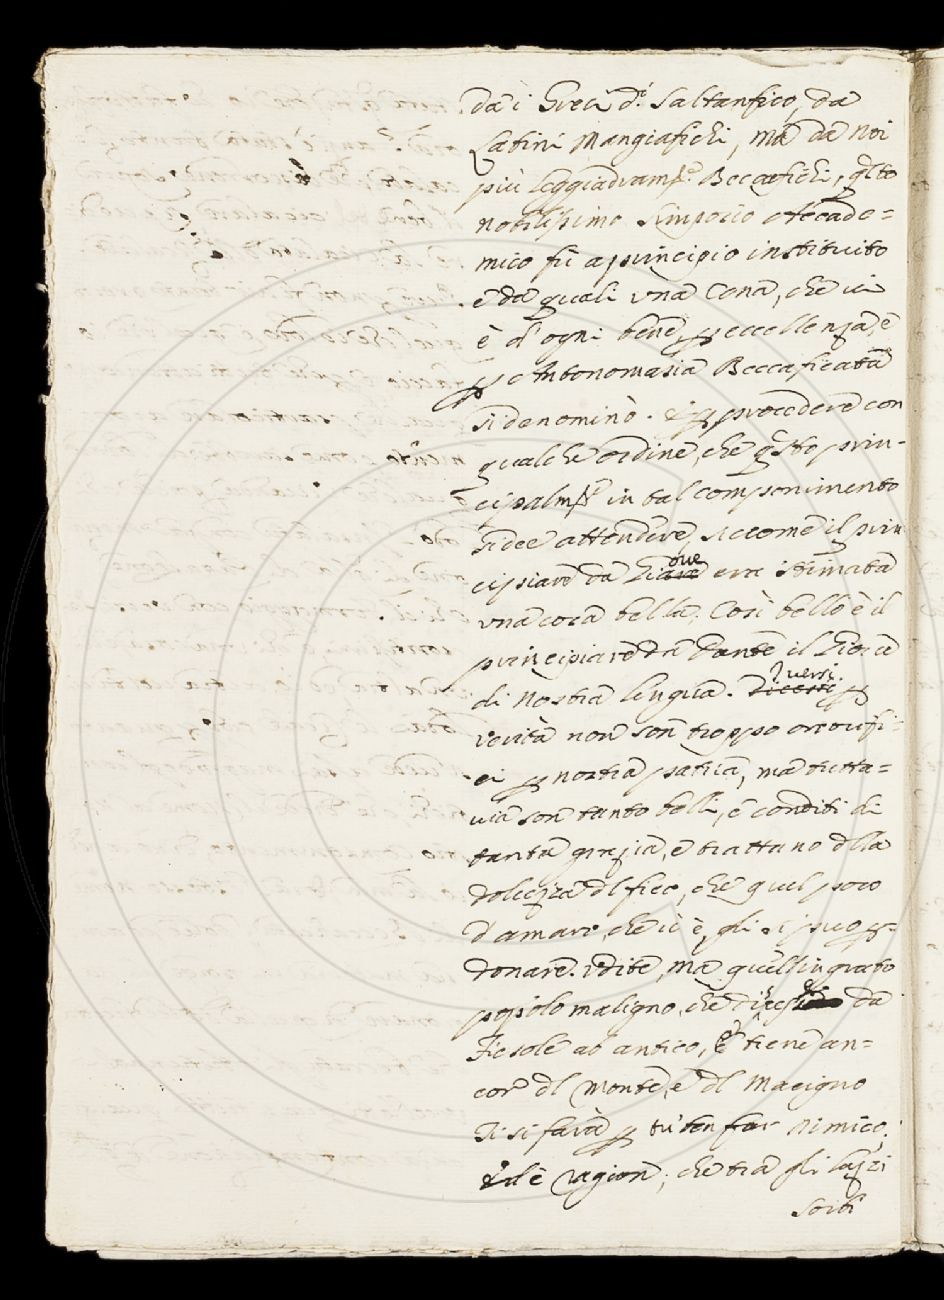 da i Greci d.ͥ Saltanfico, da
Latini Mangiafichi, ma da noi
più leggiadramᵗᵉ Beccafichi, qsto
nobilissimo Simposio Accade=
mico fù a principio instituito
e da quali una Cena, che ivi
è d' ogni bene p eccellenza, e
p Antonomasia Beccaficata
si denominò. E p procedere con
qualche ordine, che qsto prin-
cipalmᵗᵉ in tal componimento
si dee attendere, siccome il prin
cipiare da Giove era stimata
una cosa bella, Così bello è il
principiare da Dante il Giove
di nostra lingua. I versi p
verità non son troppo onorifi=
ci p nostra patria, ma tutta=
via son tanto belli, e conditi di
tanta grazia, e trattano dlla
dolcezza dl fico, che quel poco
d'amaro, che ci è, gli si può p-
donare. Udite, Ma quell'ingrato
popolo maligno, che discese da
Fiesole ab antico, e tiene an=
cor dl monte, e dl Macigno
Ti si farà p tu' ben far nimico;
Ed è ragion; che tra gli lazzi
sorbi